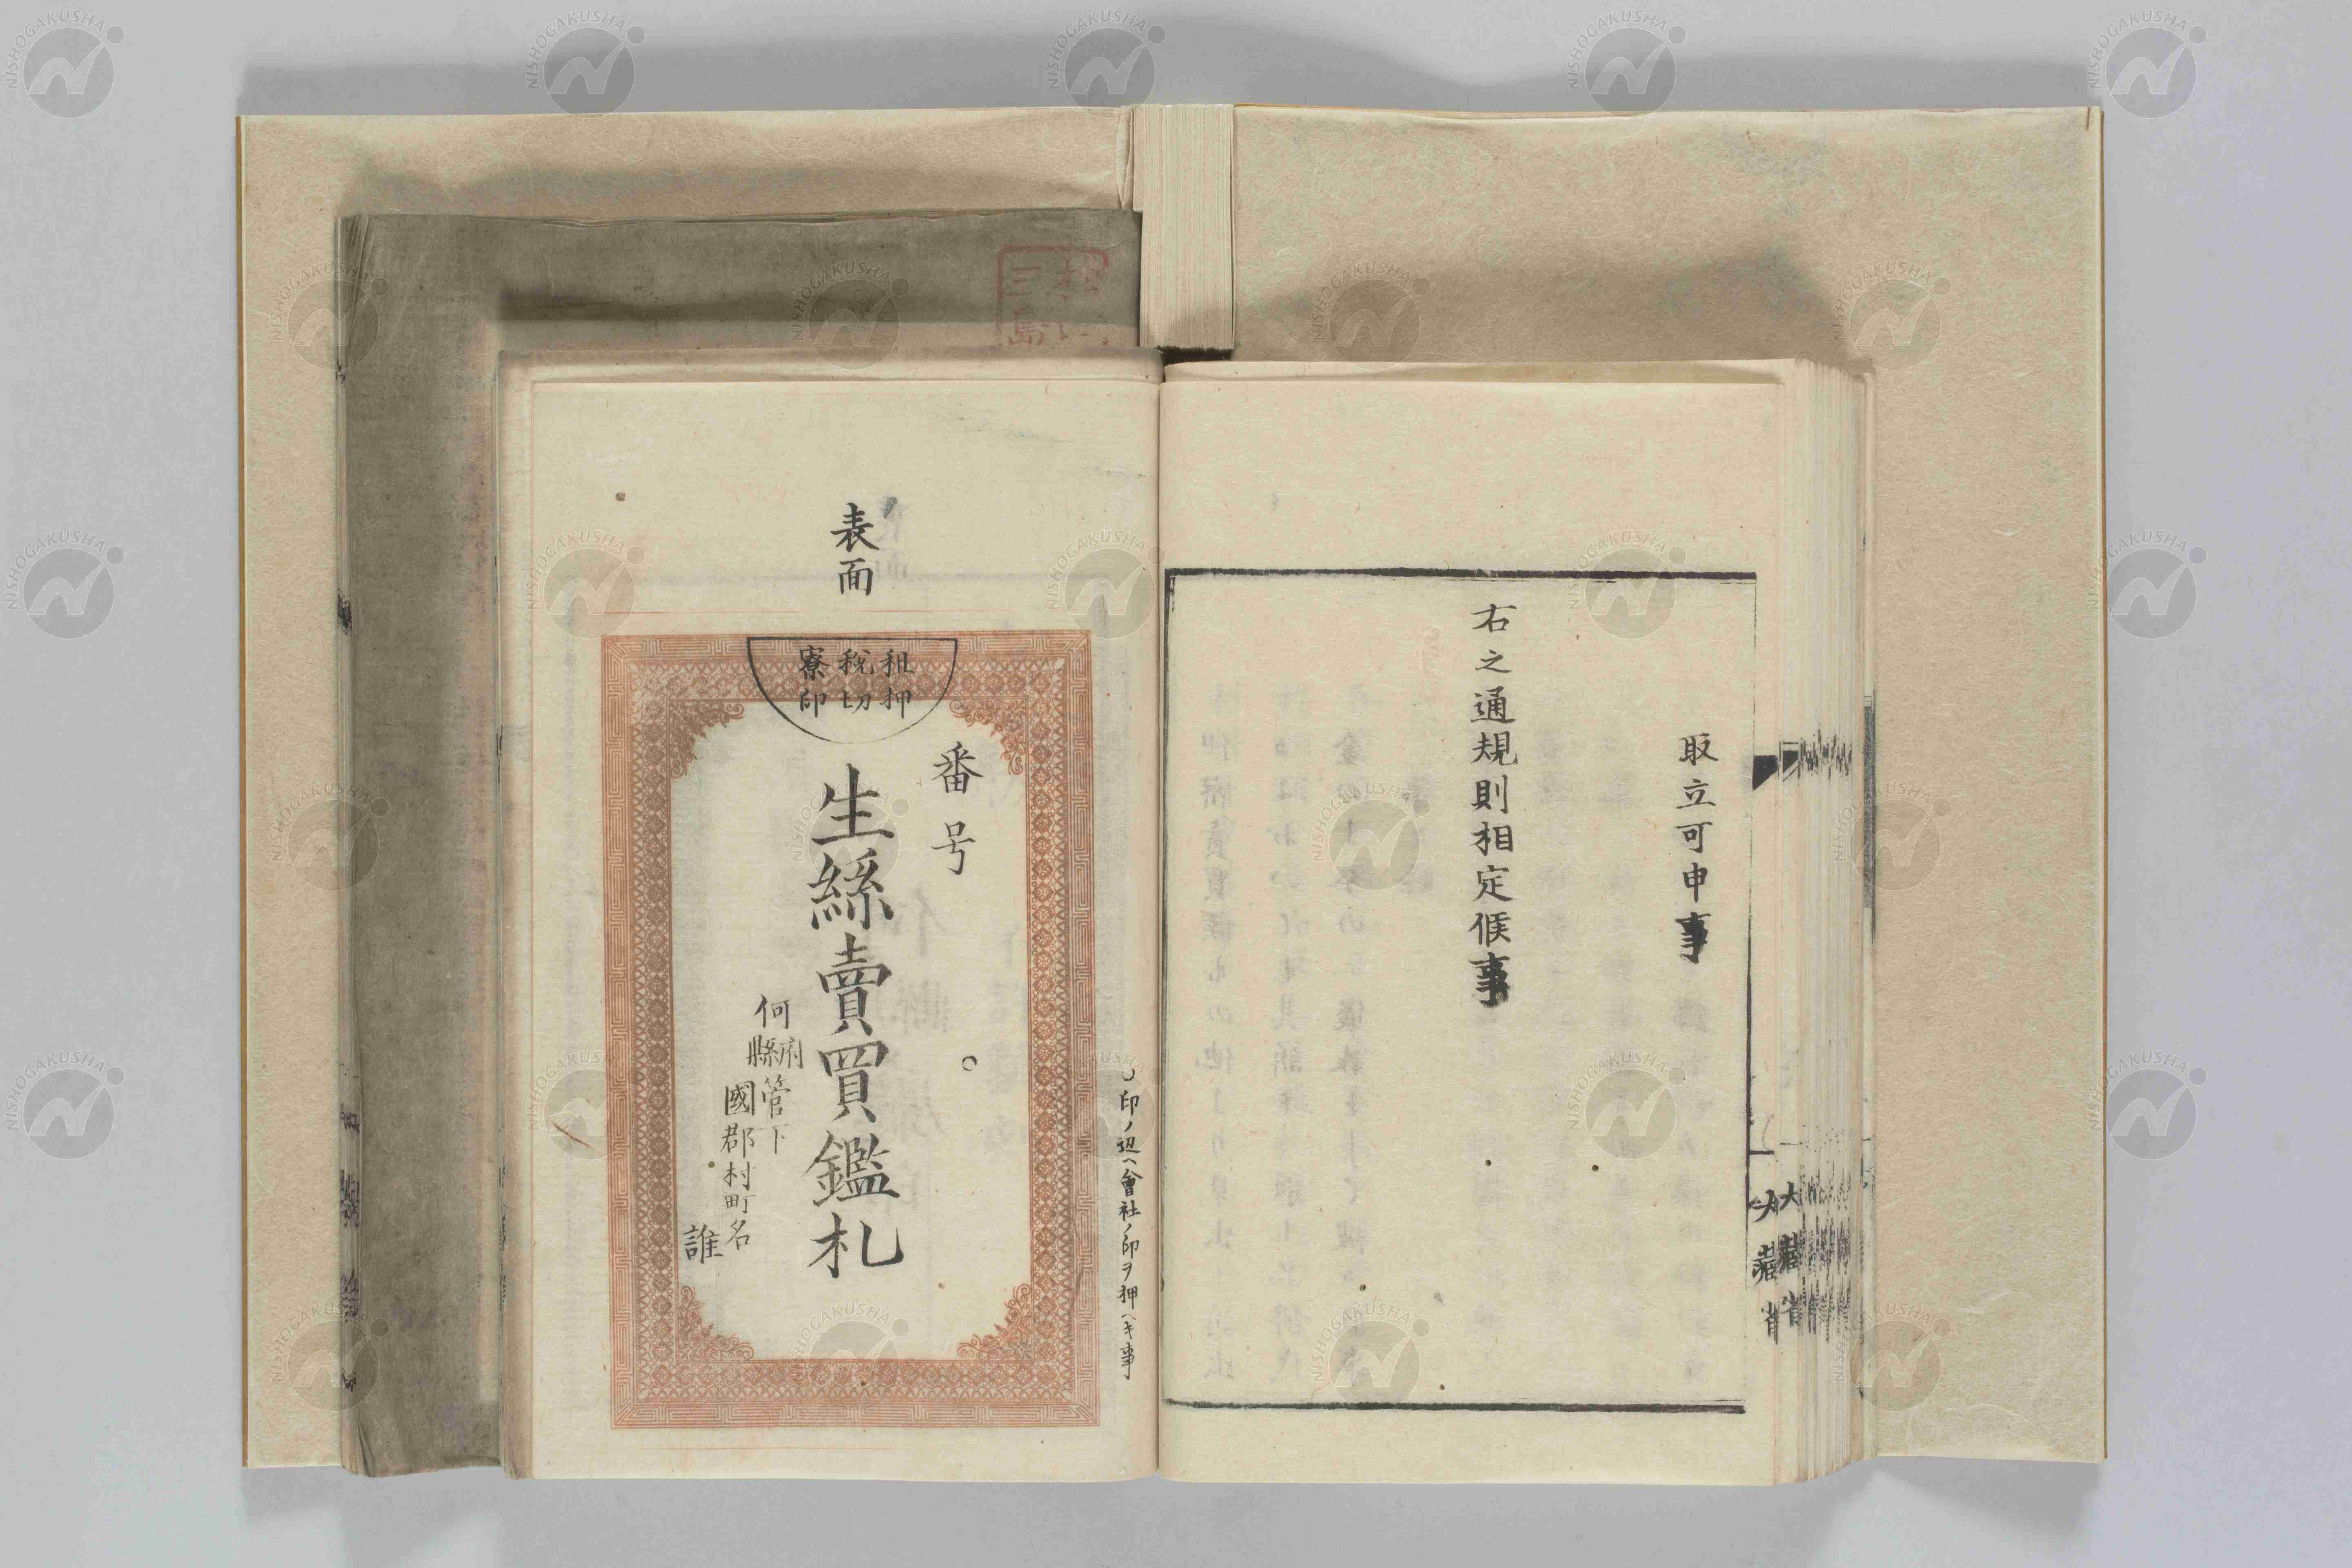 取立可申事
右之通規則相定候事
大藏省
表面
租税寮
押切印
番号
生絲賣買鑑札
何府縣管下
國郡村町名
誰
○印ノ辺ヘ會社ノ印ヲ押ヘキ事
三島
NISHOGAKUSHA